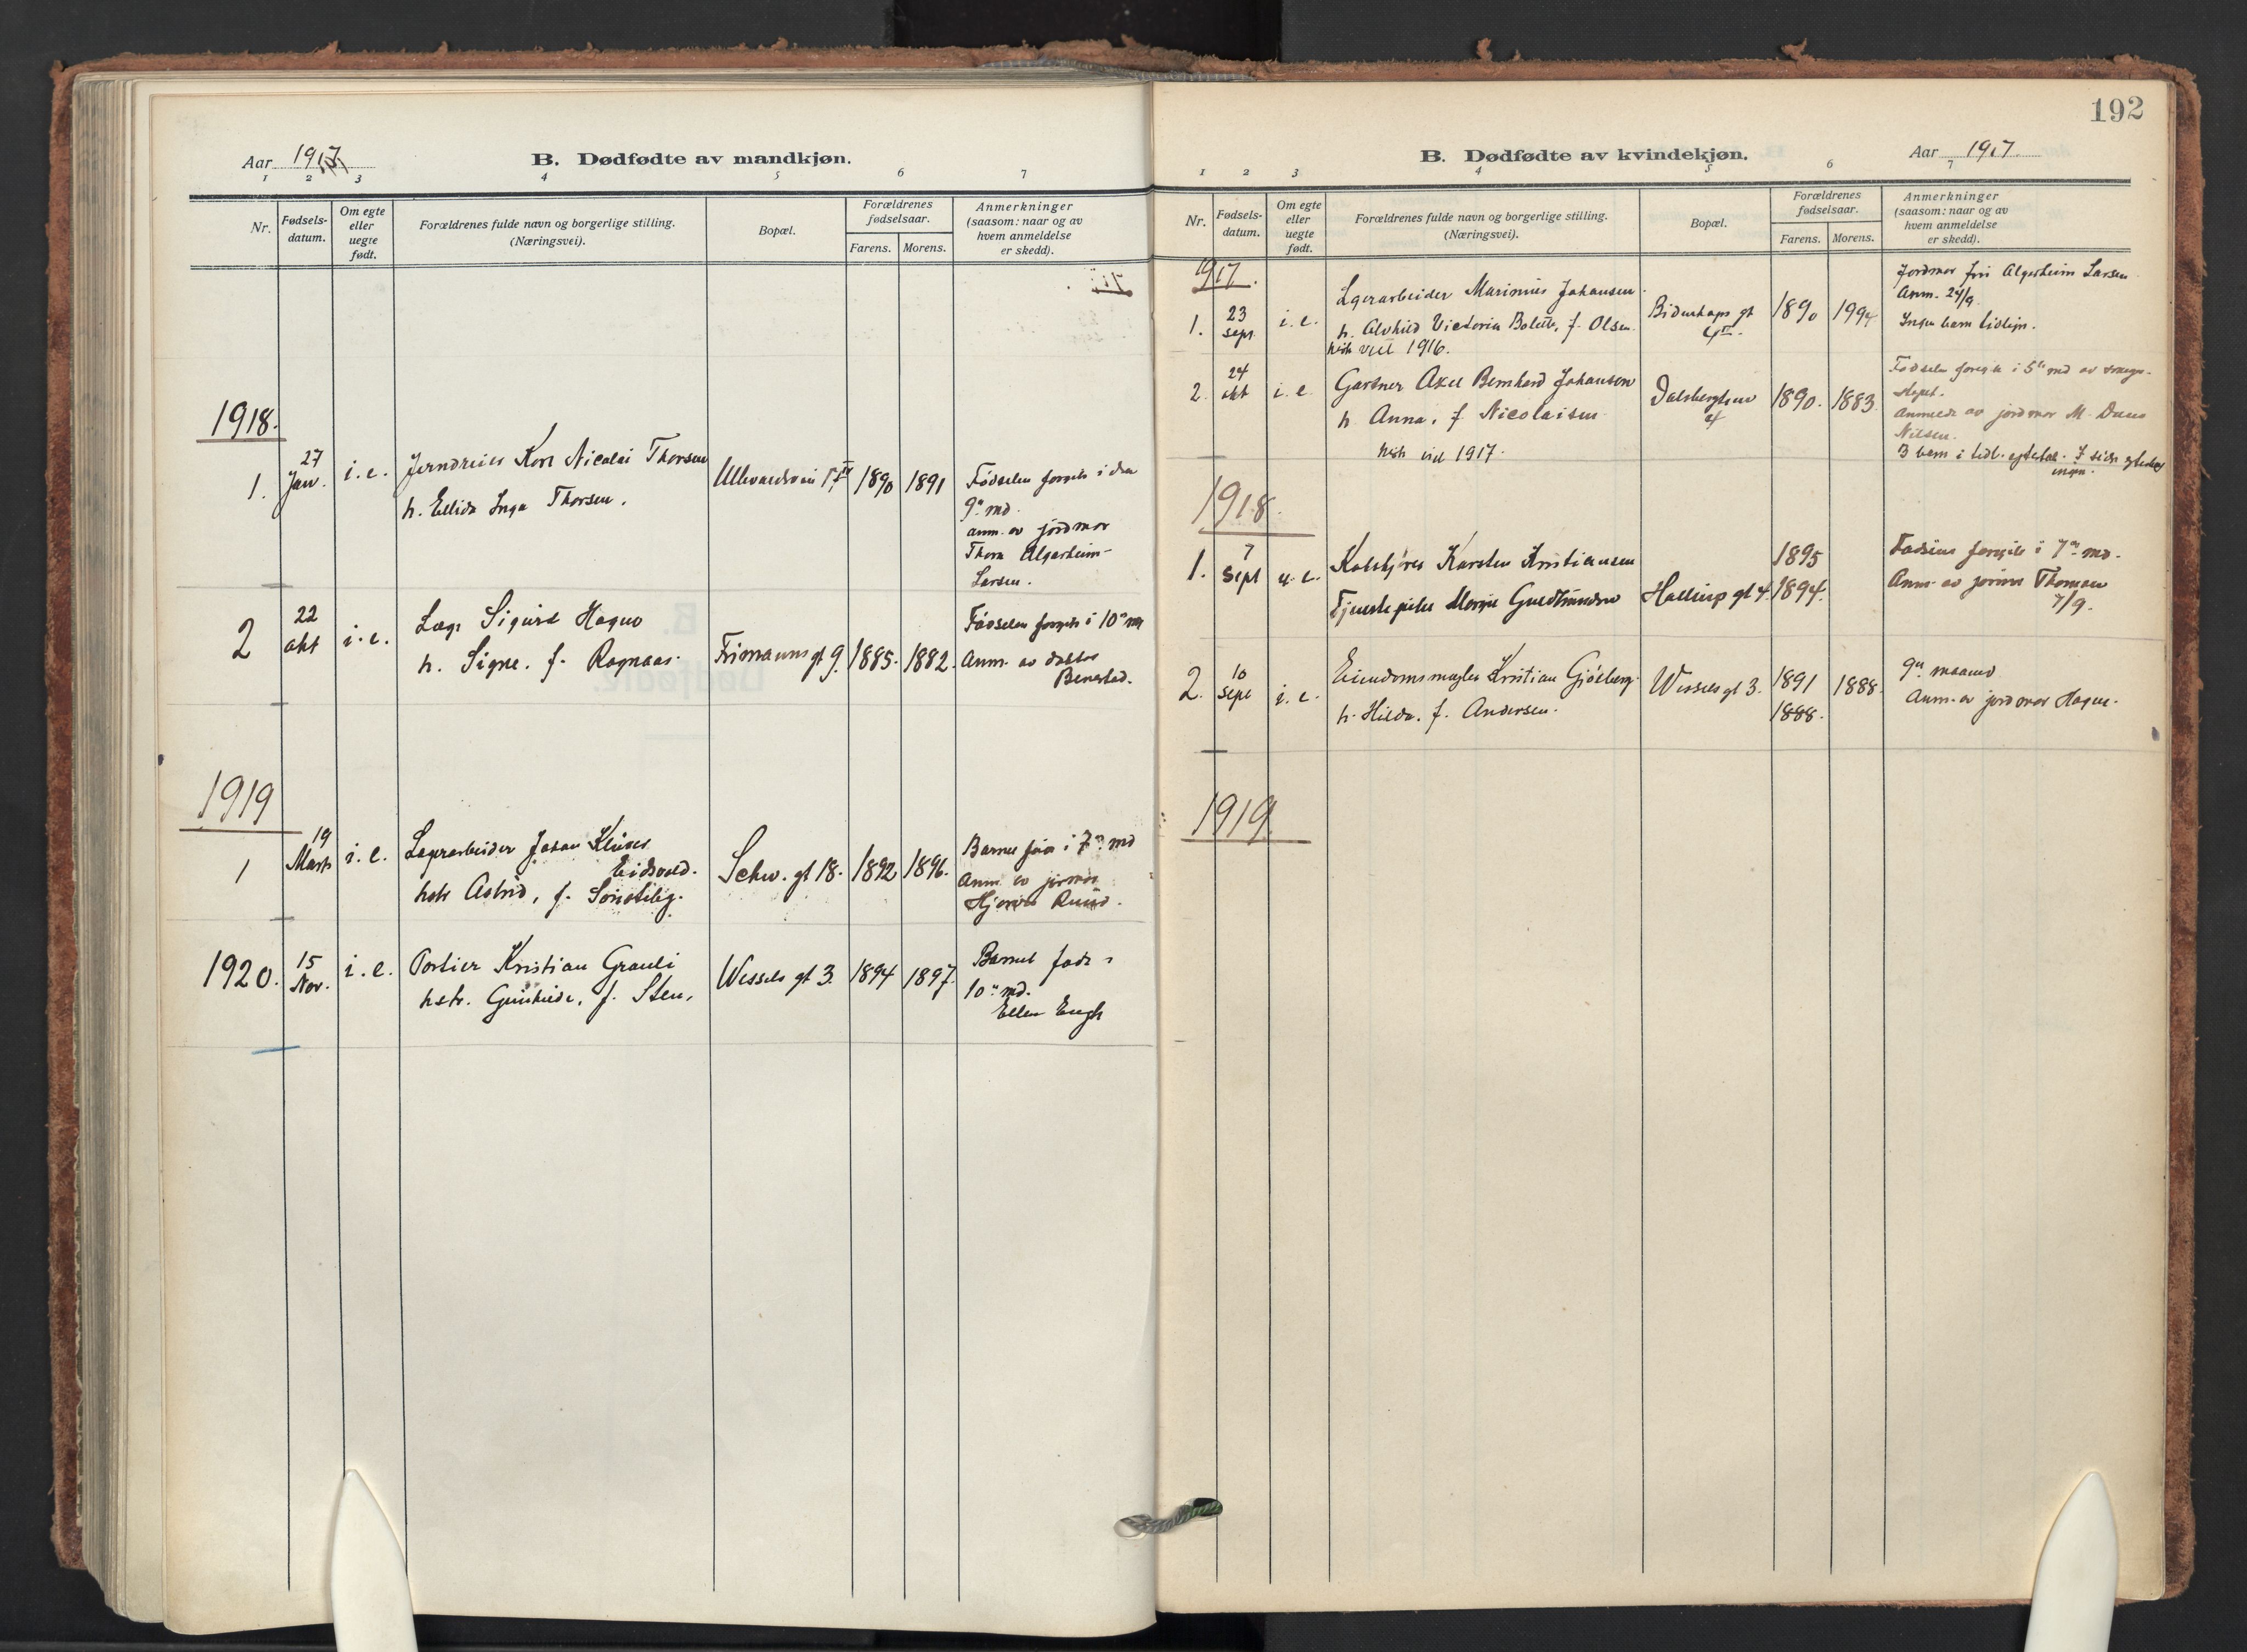 Aar 1917
B. Dødfødte av mandkjøn.
1 2 3 4 5 6 7
Nr.
Fødsels-
datum.
Om egte
eller
uegte
født.
Forældrenes fulde navn og borgerlige stilling.
(Næringsvei).
Bopæl.
Forældrenes
fødselsaar.
Farens. Morens.
Anmerkninger
(saasom: naar og av
hvem anmeldelse
er skedd).
1918.
1. 27 Jan. i. e. Jerndreier Karl Nicolai Thorsen
h. Ellida Inga Thorsen.
Ullevaalsvei 1890 1891
Fødselen foregik i den
9de md.
anm. av jordmor
Thora Algarheim-
Larsen.
2 22 okt i. e. Læge Sigurd Hagne
h. Signe. f. Ragnaas.
Frimanns gt 9. 1885. 1882.
Fødselen foregik i 10de md
Anm. av doktor
Benestad.
1919
1 19 Marts i. e. Lagerarbeider Johan
Eidsvold.
hstr Astrid, f.
Schw. gt 18. 1892 1896.
Barnet født i 7de md
Anm. av jormor
Ruud.
1920. 15 Nov. i. e. Portier Kristian Grauli
hstr. Gunhilde, f. Sten,
Wessels gt 3. 1894 1897.
Barnet født i
10de md.
Ellen Engh
192
B. Dødfødte av kvindekjøn.
Aar 1917
1 2 3 4 5 6 7
Nr.
Fødsels-
datum.
Om egte
eller
uegte
født.
Forældrenes fulde navn og borgerlige stilling.
(Næringsvei).
Bopæl.
Forældrenes
fødselsaar.
Farens. Morens.
Anmerkninger
(saasom: naar og av
hvem anmeldelse
er skedd).
1917.
1. 23 sept. i. e. Lgerarbeider Marinius Johansen
h. Alvhild Victoria Bolette, f. Olsen.
viet 1916.
gt
1890 1994
Jordmor fru Algerheim Larsen
Anm. 24/9
Ingen barn tidligr.
2. 24 okt i. e. Gartner Axel Bernhard Johansen
h Anna, f Nicolaisen
viet 1917.
Dalsbergstien
4
1890. 1883.
Fødselen foregik i 5te md av
Anmeldt av jordmor M. Duus
Nilsen.
3 barn i tidl. egteskab. I siste
ingen.
1918.
1. 7 Sept u. e. Karsten Kristiansen
Tjenestepike Marie Guldbrandsen
Hallings gt 4. 1895
1894.
Fødselen foregik i 7de md.
Anm. av jormor Thomsen
7/9.
2. 10 sept i. e. Eiendomsmægler Kristian Gjölberg.
h. Hilda. f. Andersen.
Wessels gt 3. 1891 1888.
1888.
9de maaned
Anm. av jordmor Hagne.
1919.